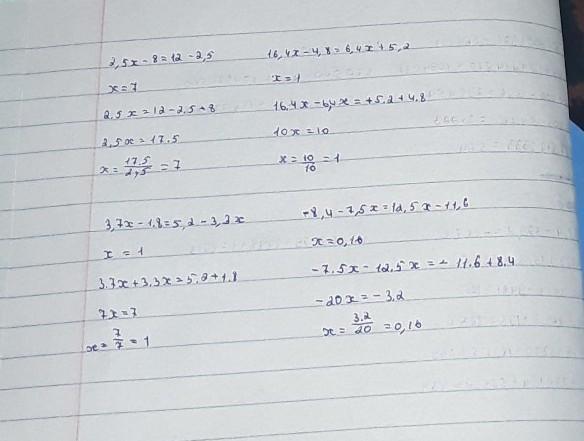 2,5x-8=12-2,5
x=7
2,5x=12-2,5+8
2,5x=17.5
x=17.5/2,5=7
16,4x-4,8=6,4x+5,2
x=1
16.4x-6,4x=+5.2+4.8
10x=10
x=10/10=1
3,7x-1,8=5,2-3,3x
x=1
3.7x+3.3x=5.2+1.8
7x=7
x=7/7=1
-8,4-7,5x=12,5x-11,6
x=0,16
-7.5x-12,5x=-11.6+8.4
-20x=-3.2
x=3.2/20=0,16